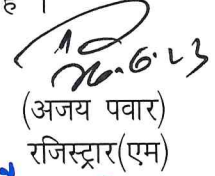 है ।
26.6.23
(अजय पवार)
रजिस्ट्रार(एम)